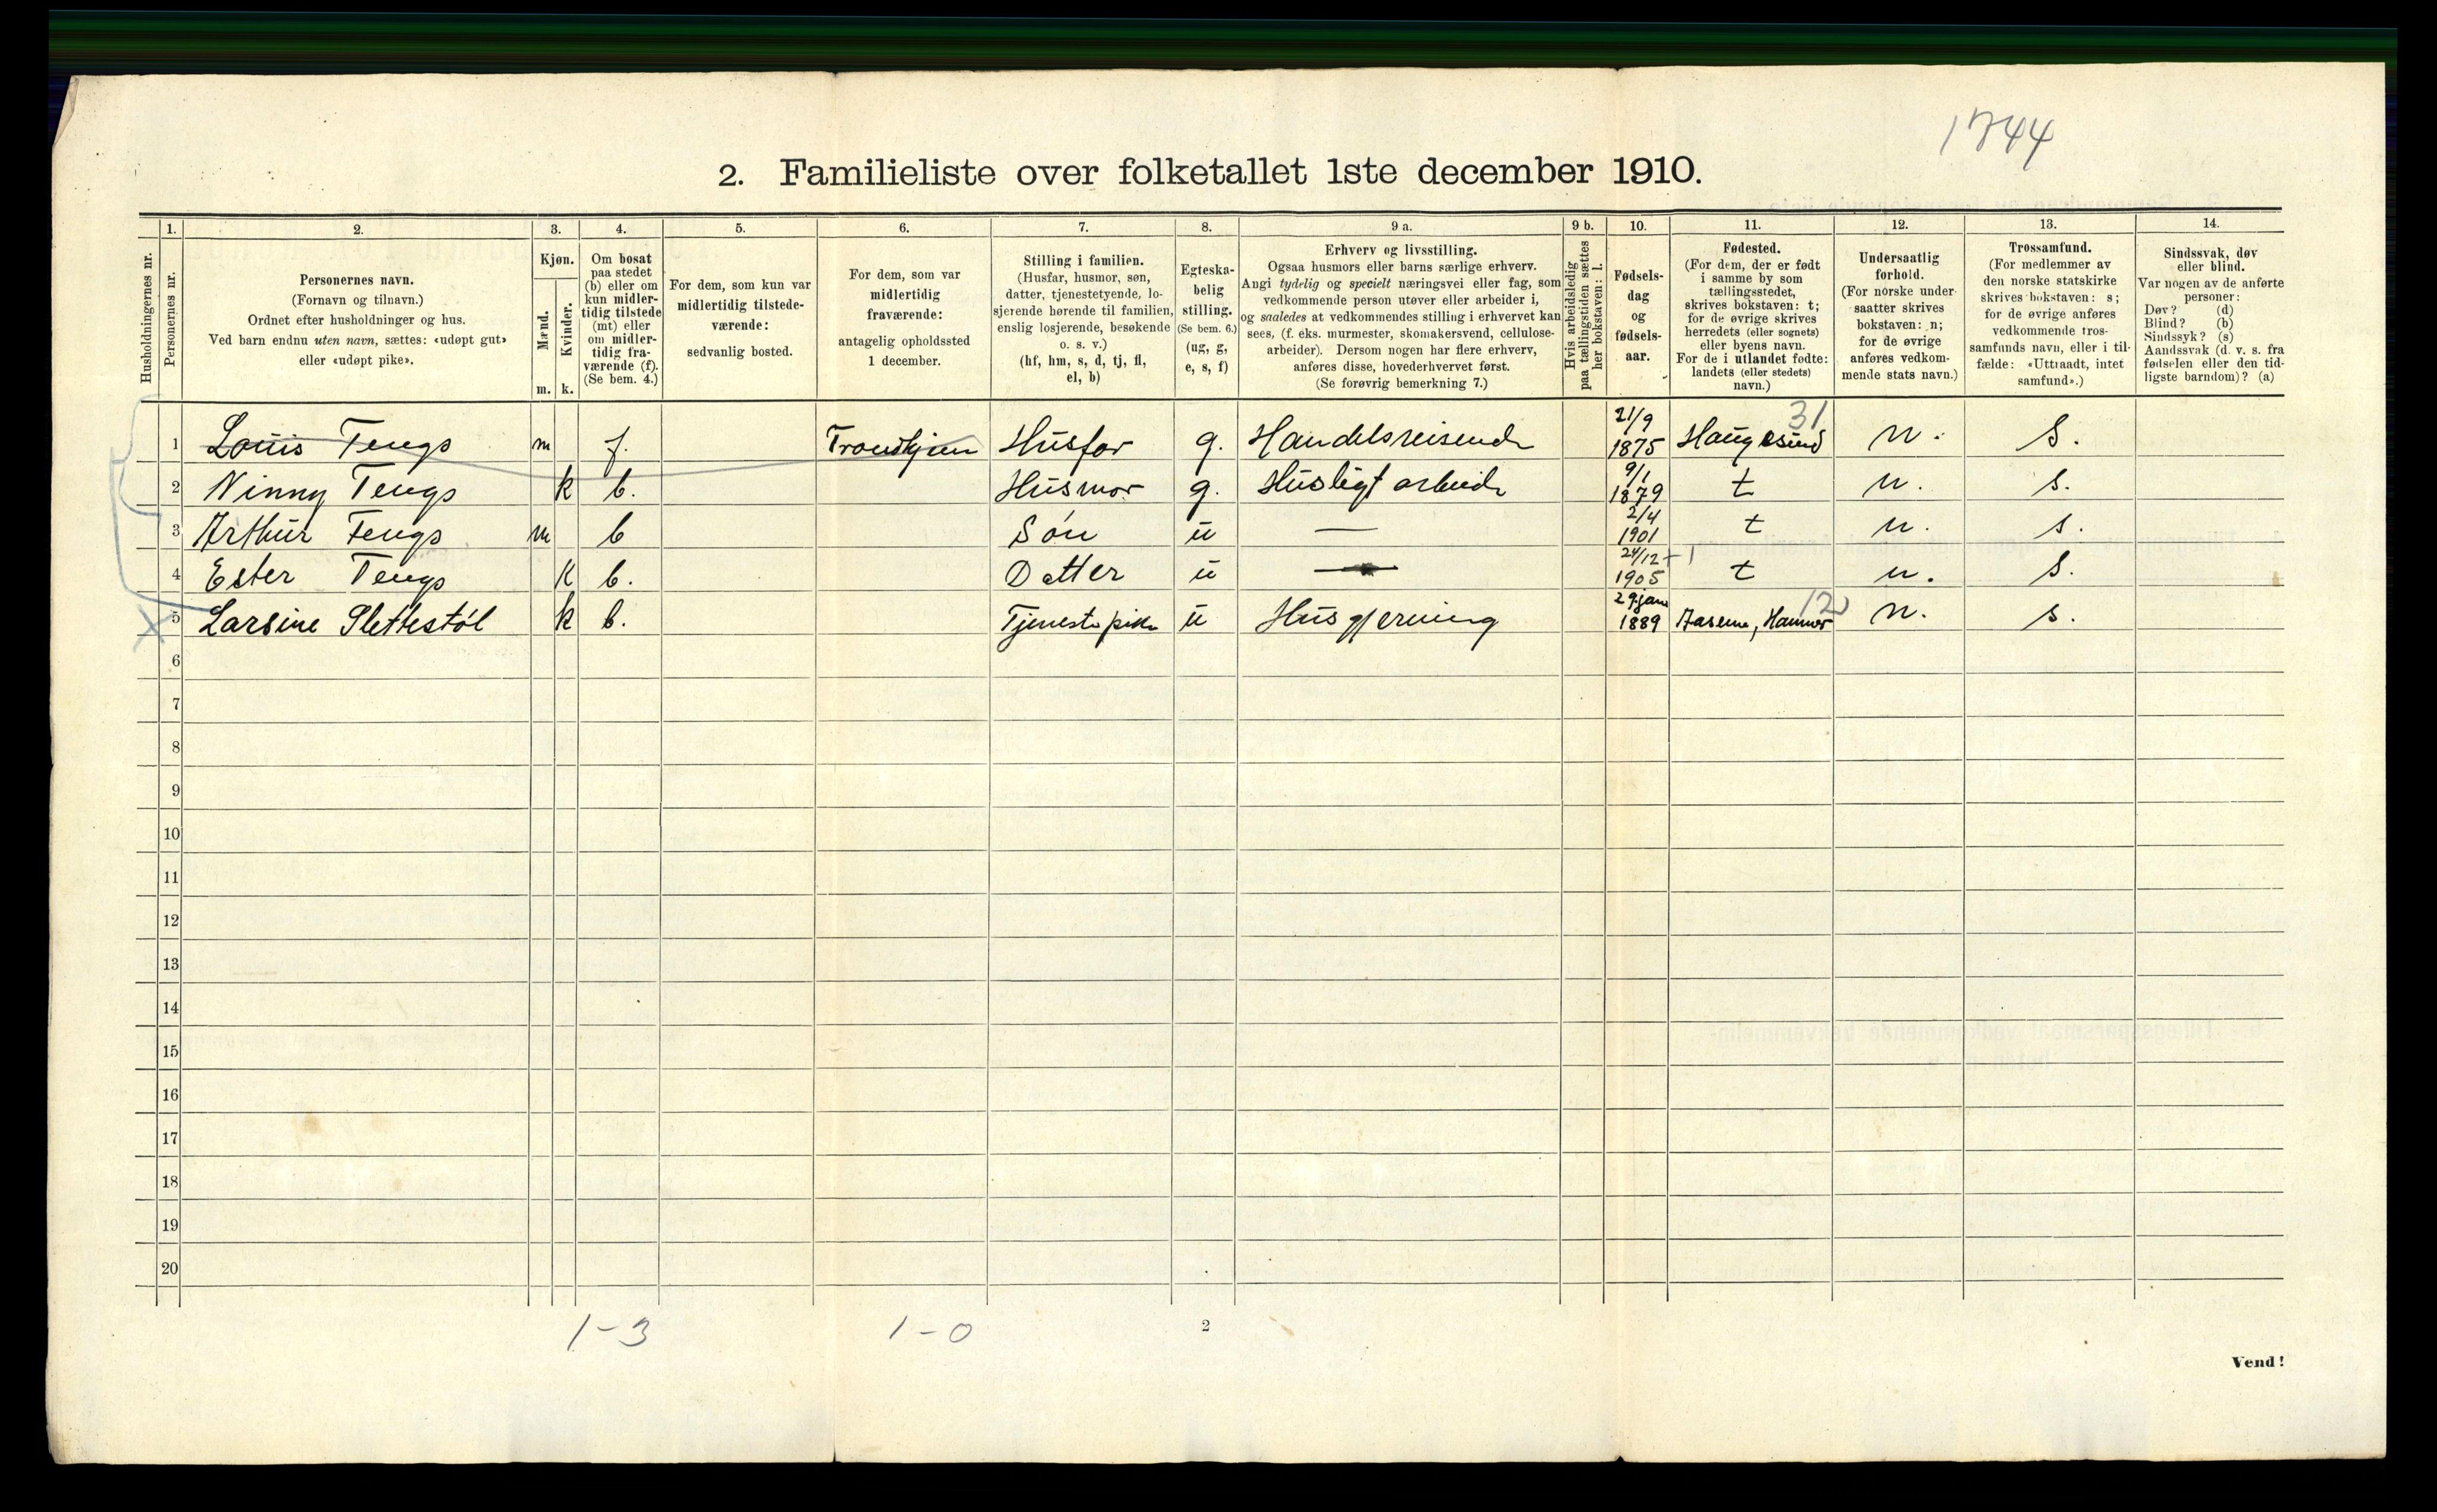 1744
2. Familieliste over folketallet 1ste december 1910.
Husholdningernes nr.
1.
Personernes nr.
2.
Personernes navn.
(Fornavn og tilnavn.)
Ordnet efter husholdninger og hus.
Ved barn endnu uten navn, sættes: «udøpt gut»
eller «udøpt pike».
3.
Kjøn.
Mænd.
m.
Kvinder.
k.
4.
Om bosat
paa stedet
(b) eller om
kun midler-
tidig tilstede
(mt) eller
om midler-
tidig fra-
værende (f).
(Se bem. 4.)
5.
For dem, som kun var
midlertidig tilstede-
værende:
sedvanlig bosted.
6.
For dem, som var
midlertidig
fraværende:
antagelig opholdssted
1 december.
7.
Stilling i familien.
(Husfar, husmor, søn,
datter, tjenestetyende, lo-
sjerende hørende til familien,
enslig losjerende, besøkende
o. s. v.)
(hf, hm, s, d, tj, fl,
el, b)
8.
Egteska-
belig
stilling.
(Se bem. 6.)
(ug, g,
e, s, f)
9 a.
Erhverv og livsstilling.
Ogsaa husmors eller barns særlige erhverv.
Angi tydelig og specielt næringsvei eller fag, som
vedkommende person utøver eller arbeider i,
og saaledes at vedkommendes stilling i erhvervet kan
sees, (f. eks. murmester, skomakersvend, cellulose-
arbeider). Dersom nogen har flere erhverv,
anføres disse, hovederhvervet først.
(Se forøvrig bemerkning 7.)
9 b.
Hvis arbeidsledig
paa tællingstiden sættes
her bokstaven: l.
10.
Fødsels-
dag
og
fødsels-
aar.
11.
Fødested.
(For dem, der er født
i samme by som
tællingsstedet,
skrives bokstaven: t;
for de øvrige skrives
herredets (eller sognets)
eller byens navn.
For de i utlandet fødte:
landets (eller stedets)
navn.)
12.
Undersaatlig
forhold.
(For norske under
saatter skrives
bokstaven: n;
for de øvrige
anføres vedkom-
mende stats navn.)
13.
Trossamfund.
(For medlemmer av
den norske statskirke
skrives bokstaven: s;
for de øvrige anføres
vedkommende tros-
samfunds navn, eller i til-
fælde: «Uttraadt, intet
samfund».)
14.
Sindssvak, døv
eller blind.
Var nogen av de anførte
personer:
Døv? (d)
Blind? (b)
Sindssyk? (s)
Aandssvak (d. v. s. fra
fødselen eller den tid-
ligste barndom)? (a)
1 Louis Tengs m f. Trondhjem Husfar g. Handelsreisende 21/9 1875 Haugesund 31 n. s.
2 Ninny Tengs k b. Husmor g. Husligt arbeide 9/1 1879 t n. s.
3 Arthur Tengs m b Søn u — 2/4 1901 t n. s.
4 Ester Tengs k b. Datter u — 24/12 1905 t n. s.
5 Larsine Slettestøl k b. Tjenestepike u Husgjerning 29 jan 1889 12 n. s.
6
7
8
9
10
11
12
13
14
15
16
17
18
19
20
1-3 1-0
2
Vend!